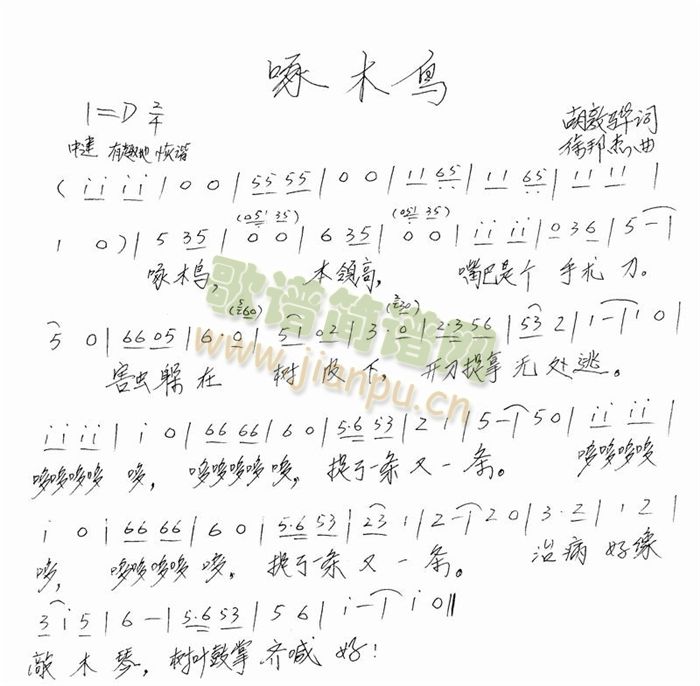 啄木鸟
1=D 2/4
中速 有趣地 诙谐
胡敦骅词
徐邦杰曲
( i i i i | 0 0 | 55 55 | 0 0 | 11 65 | 11 65 | 11 11 |
1 0 ) | 5 35 | (051 35) 0 0 | 6 35 | (051 35) 0 0 | i i i i | 0 36 | 5 - |
啄木鸟, 本领高, 嘴巴是个 手术刀。
5 0 | 66 05 | 6·0 | 5 1 02 | 3·0 | 2·3 56 | 53 2 | 1 - | 1 0 |
害虫躲在 树皮下, 开刀捉拿无处逃。
i i i i | i 0 | 66 66 | 6 0 | 5·6 53 | 2 1 | 5 - | 5 0 | i i i i |
哆哆哆哆 哆, 哆哆哆哆哆, 捉了一条又一条。 哆哆哆哆
i 0 | 66 66 | 6 0 | 5·6 53 | 23 1 | 2 - | 2 0 | 3·2 | 1 2 |
哆, 哆哆哆哆哆, 捉了一条又一条。 治病好像
3 i 5 | 6 - | 5·6 53 | 5 6 | i - | i 0 ||
敲木琴, 树叶鼓掌齐喊好!
歌谱简谱网
www.jianpu.cn